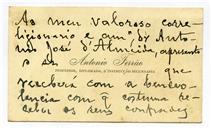 Ao meu valoroso corre-
ligionario e amº dr Anto-
nio José d'Almeida, apresento
o sr. Antonio Ferrão
PROFESSOR, DIPLOMADO, D'INSTRUCÇÃO SECUNDARIA
que
receberá com a benevo-
lencia com q costuma re-
ceber os seus correligionarios